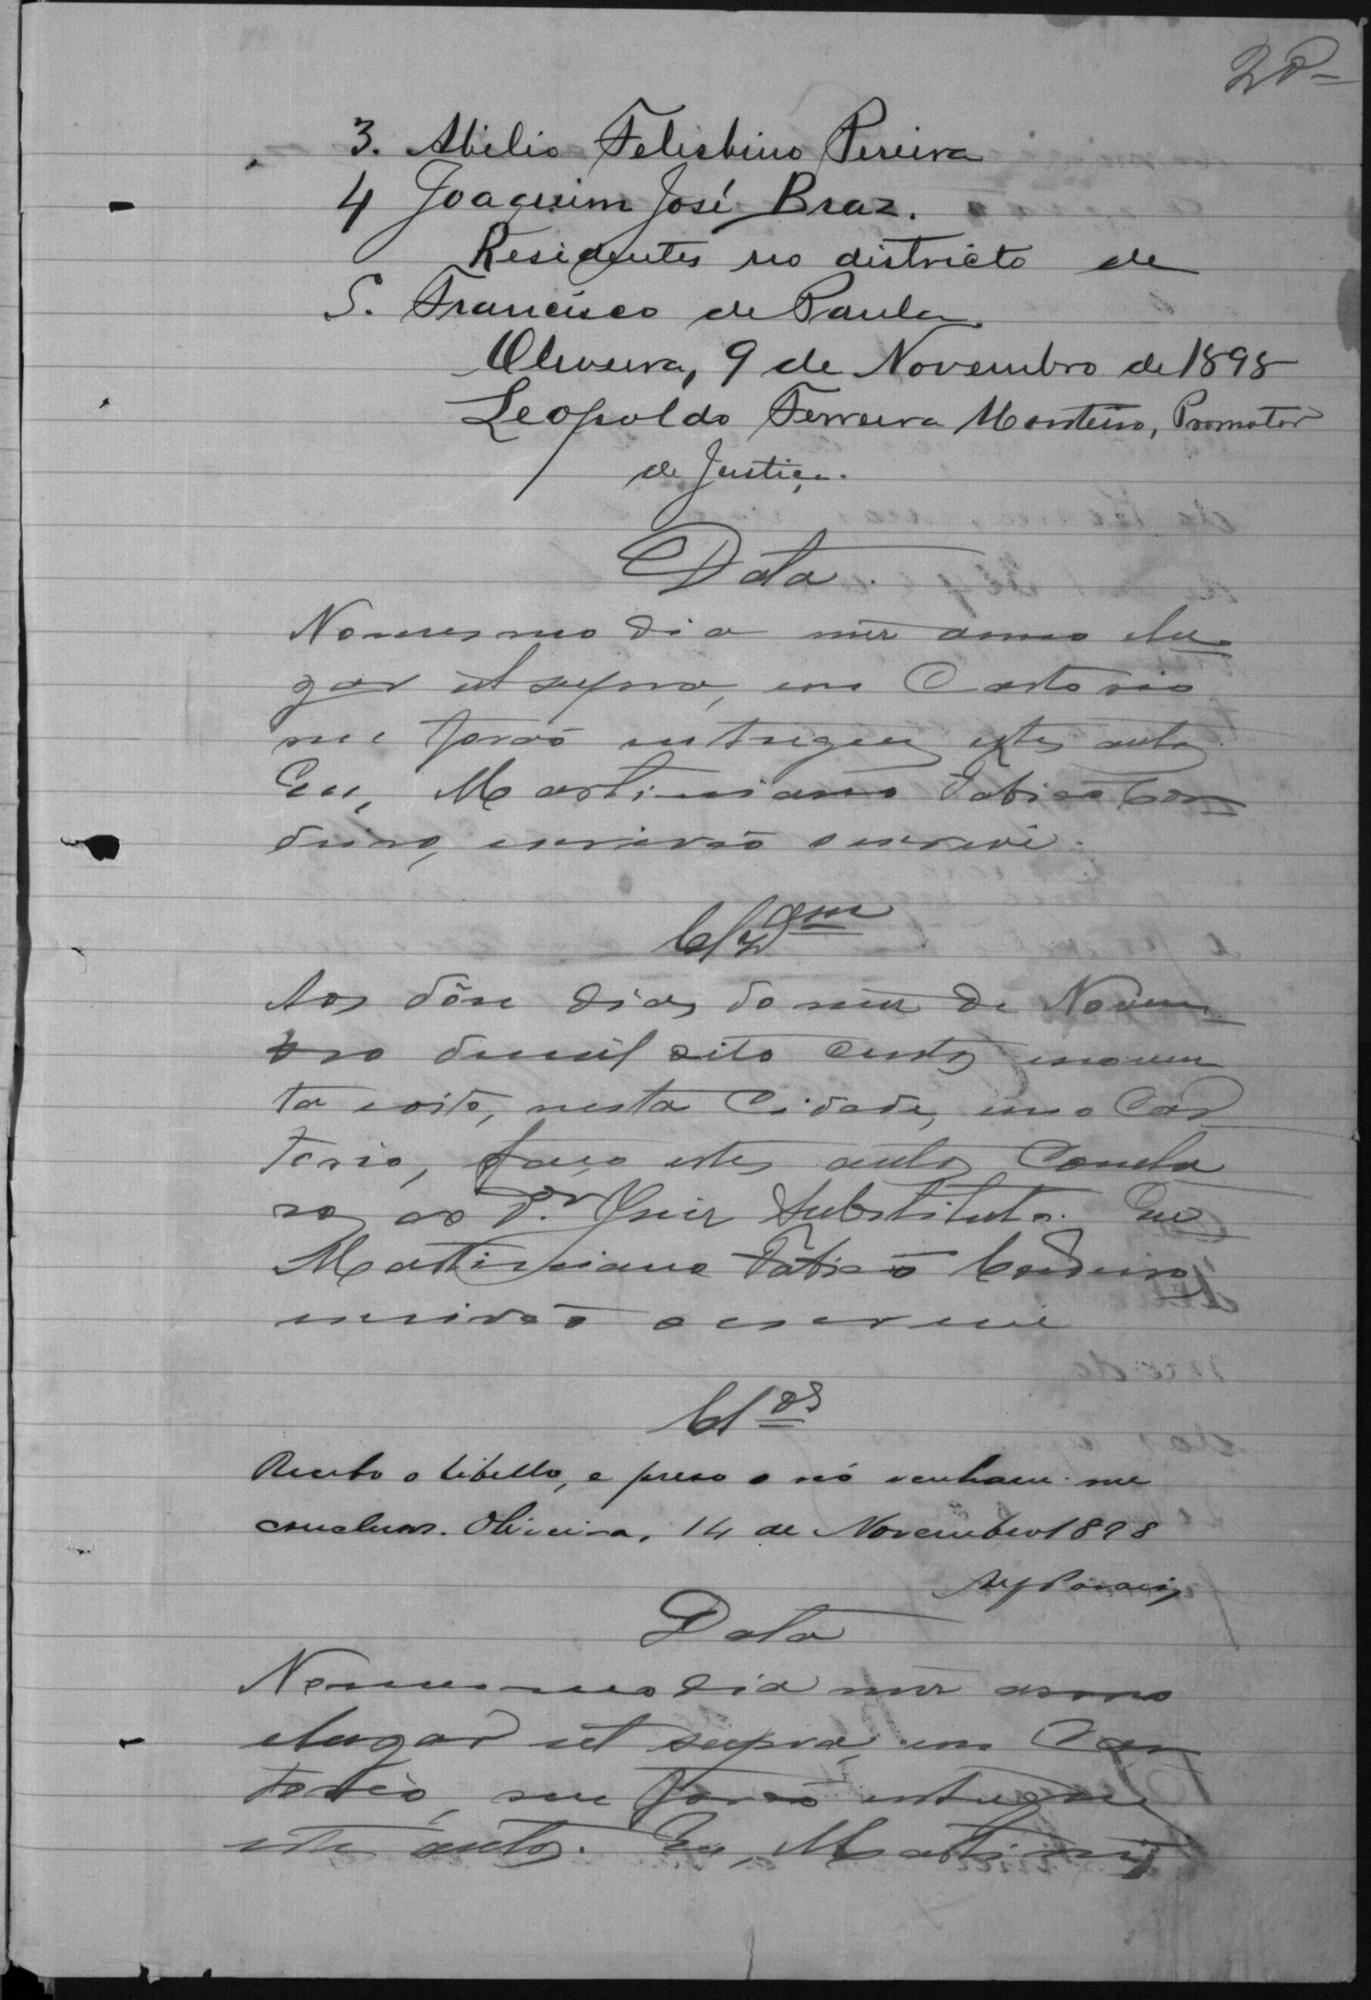 3. Abilio Felisbino Pereira
4 Joaquim José Braz.
Residentes no districto de
S. Francisco de Paula.
Oliveira, 9 de Novembro de 1898
Leopoldo Ferreira Monteiro, Promotor
de Justiça.
Data.
No mesmo dia mez anno e lu-
gar ut supra, em Cartorio
me forão entregues estes autos.
Eu, Martiniano Fabião Cor-
deiro, escrivão o escrevi.
Clzam
Aos dôse dias do mez de Novem-
bro de mil oito centos e noven
ta e oito, nesta Cidade, em o Car
torio, faço estes autos Conclu
sos ao Dr. Juiz Substituto. Eu
Martiniano Fabião Cordeiro,
escrivão o escrevi
Clos
Recebo o libello, e preso o réo venham-me
conclusos. Oliveira, 14 de Novembro 1898
Data
No mesmo dia mez anno
e lugar ut supra, em Car
torio, me forão entregues
estes autos. Eu, Martini